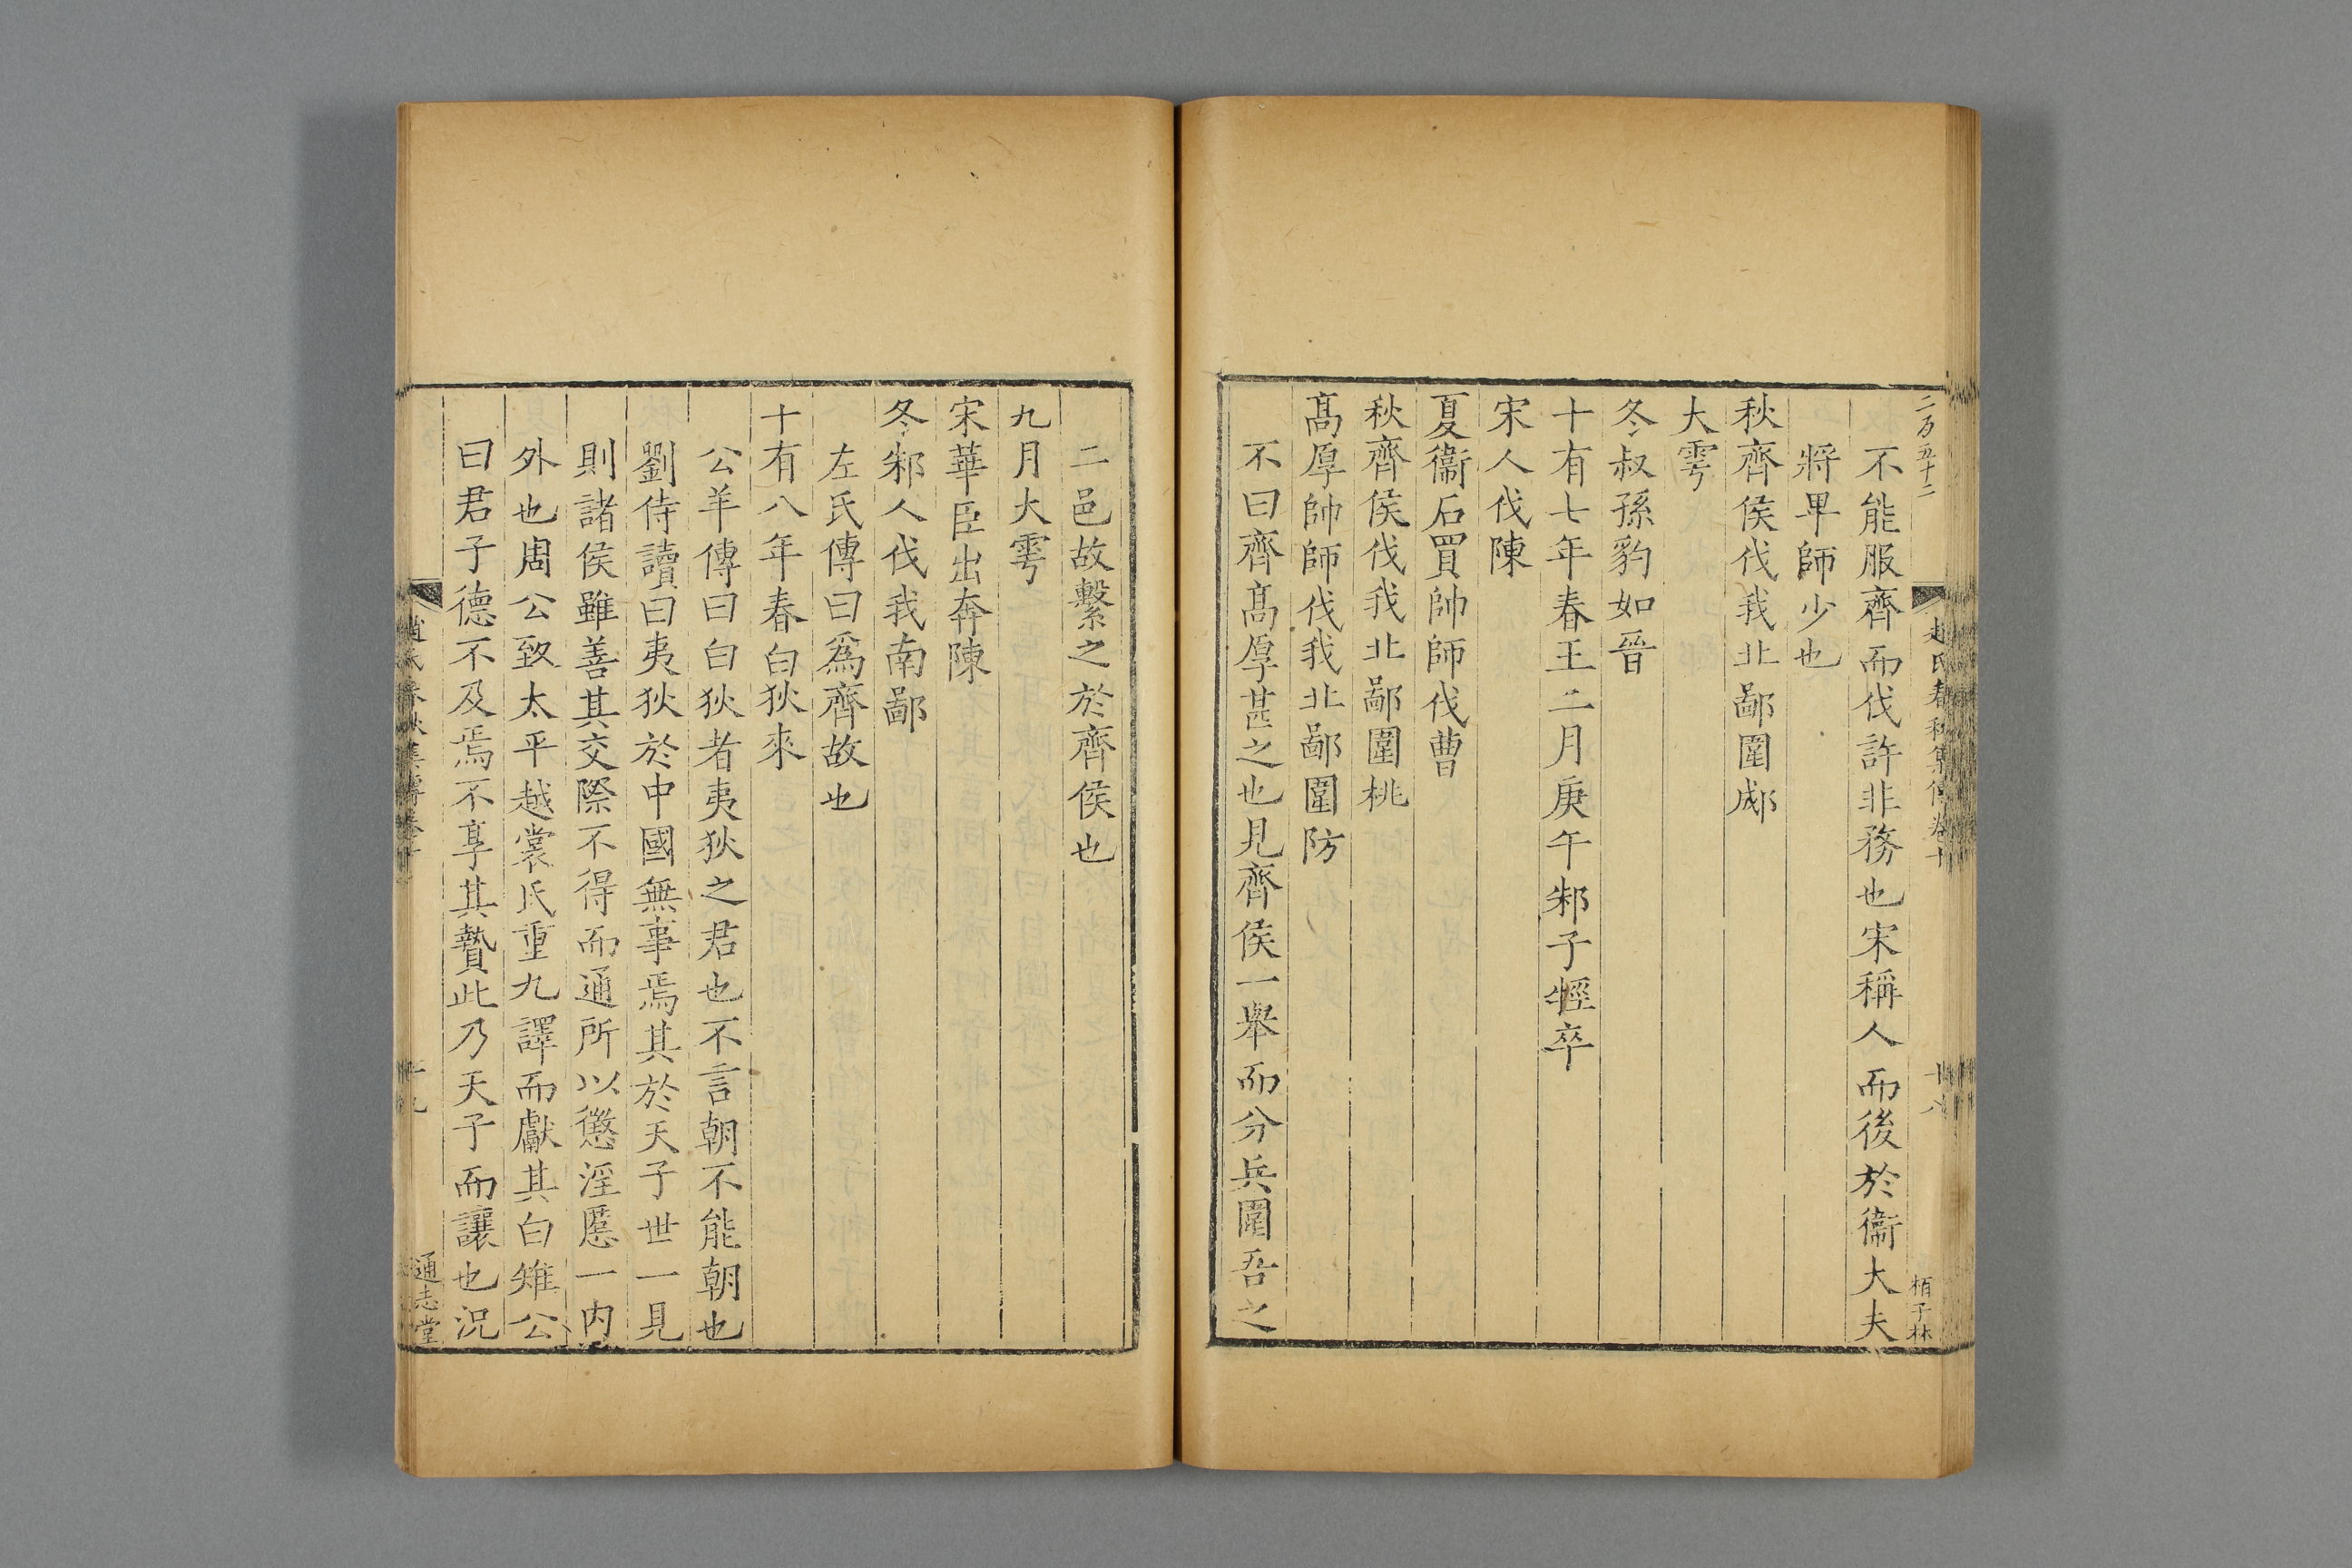 二百五十二
趙氏春秋集傳卷十
十八
栢子林
不能服齊而伐許非務也宋稱人而後於衞大夫
將卑師少也
秋齊侯伐我北鄙圍郕
大雩
冬叔孫豹如晉
十有七年春王二月庚午邾子牼卒
宋人伐陳
夏衞石買帥師伐曹
秋齊侯伐我北鄙圍桃
高厚帥師伐我北鄙圍防
不曰齊高厚甚之也見齊侯一舉而分兵圍吾之
二邑故繫之於齊侯也
九月大雩
宋華臣出奔陳
冬邾人伐我南鄙
左氏傳曰爲齊故也
十有八年春白狄來
公羊傳曰白狄者夷狄之君也不言朝不能朝也
劉侍讀曰夷狄於中國無事焉其於天子世一見
則諸侯雖善其交際不得而通所以懲淫慝一內
外也周公致太平越裳氏重九譯而獻其白雉公
曰君子德不及焉不享其贄此乃天子而讓也況
趙氏春秋集傳卷十
十九
通志堂